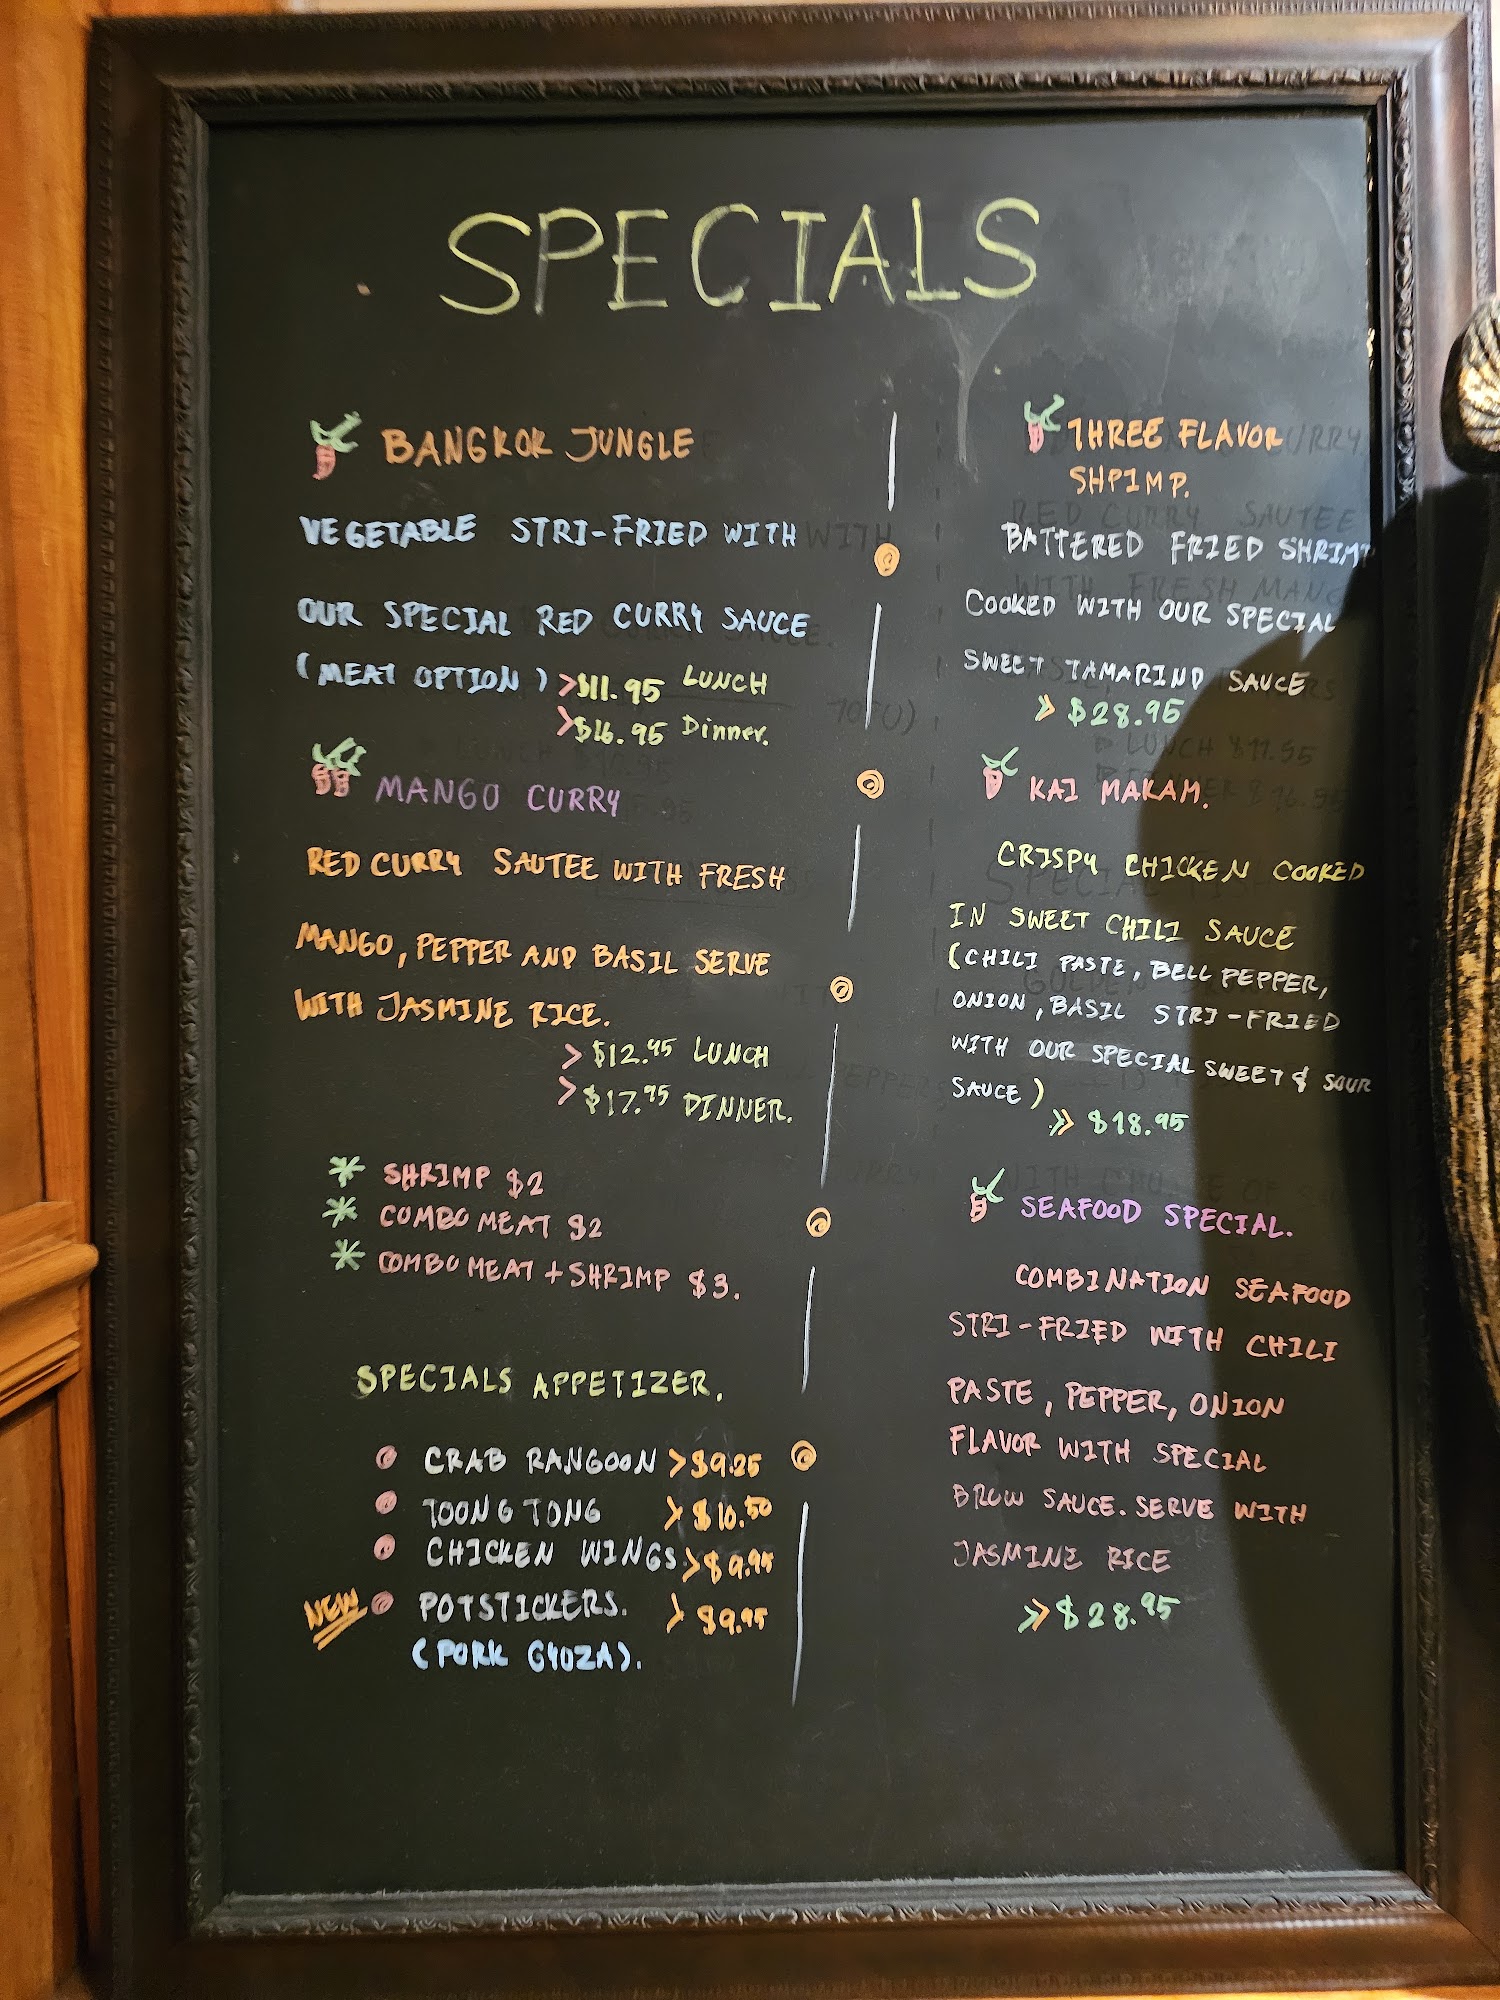 SPECIALS
BANGKOK JUNGLE
VEGETABLE STRI-FRIED WITH
OUR SPECIAL RED CURRY SAUCE
(MEAT OPTION) >$11.95 LUNCH
>$16.95 Dinner.
MANGO CURRY
RED CURRY SAUTEE WITH FRESH
MANGO, PEPPER AND BASIL SERVE
WITH JASMINE RICE.
> $12.95 LUNCH
> $17.95 DINNER.
* SHRIMP $2
* COMBO MEAT $2
* COMBO MEAT + SHRIMP $3.
SPECIALS APPETIZER.
CRAB RANGOON > $9.25
TOONG TONG > $10.50
CHICKEN WINGS. > $9.95
NEW POTSTICKERS. > $9.95
(PORK GYOZA).
THREE FLAVOR
SHPIMP.
BATTERED FRIED SHRIMP
COOKED WITH OUR SPECIAL
SWEET TAMARIND SAUCE
>> $28.95
KAI MAKAM.
CRISPY CHICKEN COOKED
IN SWEET CHILI SAUCE
(CHILI PASTE, BELL PEPPER,
ONION, BASIL STRI-FRIED
WITH OUR SPECIAL SWEET & SOUR
SAUCE)
>> $18.95
SEAFOOD SPECIAL.
COMBINATION SEAFOOD
STRI-FRIED WITH CHILI
PASTE, PEPPER, ONION
FLAVOR WITH SPECIAL
BROW SAUCE. SERVE WITH
JASMINE RICE
>> $28.95